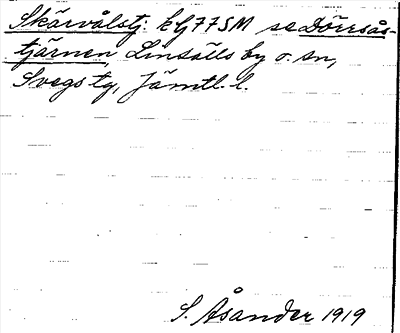 Skärvålstj. kG77SM se Dörrsås-
tjärnen, Linsälls by o. sn,
Svegs tg, Jämtl. l.
S. Åsander 1919